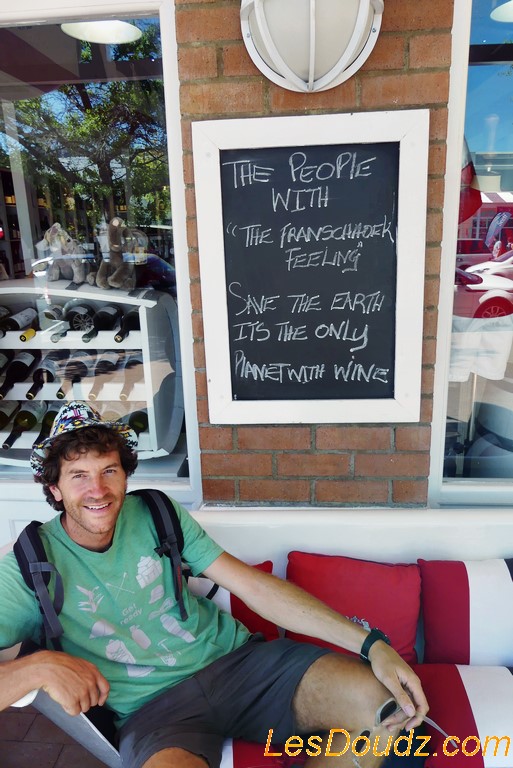 THE PEOPLE
WITH
"THE FRANSCHHOEK
FEELING"
SAVE THE EARTH
IT'S THE ONLY
PLANET WITH WINE
Get
ready
LesDoudz.com